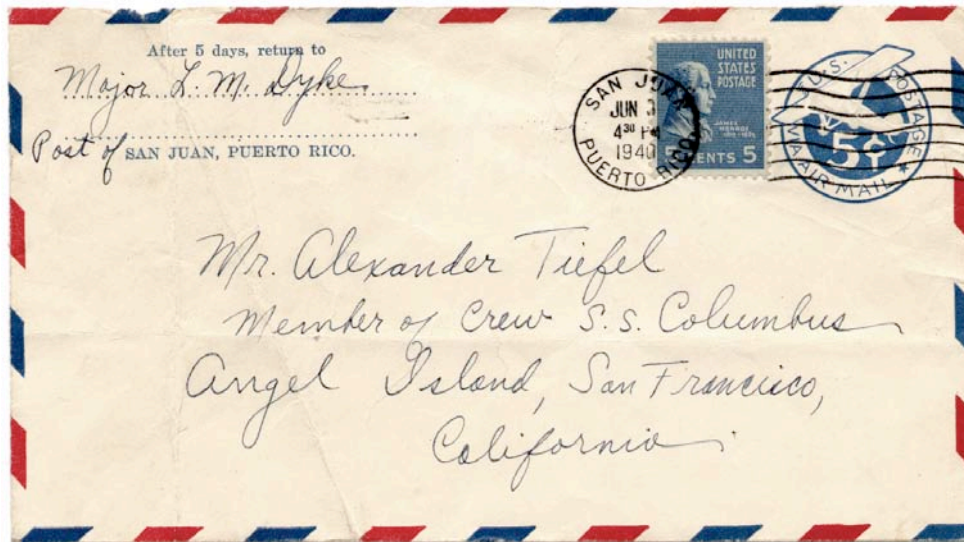 After 5 days, return to
Major L. M. Dyke
Post of SAN JUAN, PUERTO RICO.
SAN JUAN
JUN 3
4³⁰ PM
1940
PUERTO RICO
UNITED
STATES
POSTAGE
JAMES
MONROE
5 CENTS 5
U.S. POSTAGE
5¢
VIA AIR MAIL
Mr. Alexander Tiefel
Member of Crew S.S. Columbus
Angel Island, San Francisco,
California